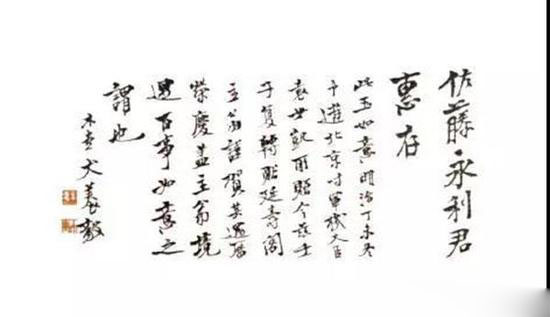 佐藤永利君
惠存
此玉如意明治丁未冬
予遊北京时軍機大臣
袁世凱所貽今茲壬
子复轉貽延壽閣
主翁謹賀其還曆
榮慶蓋主翁境
遇百事如意之
謂也
木堂犬養毅